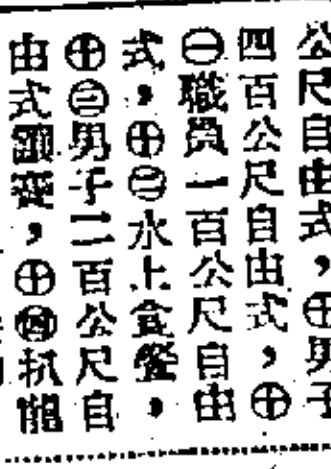 公尺自由式，㊉男子
四百公尺自由式，㊉
㊀職員一百公尺自由
式，㊉㊁水上餐，
㊉㊂男子二百公尺自
由式賽，㊉㊃